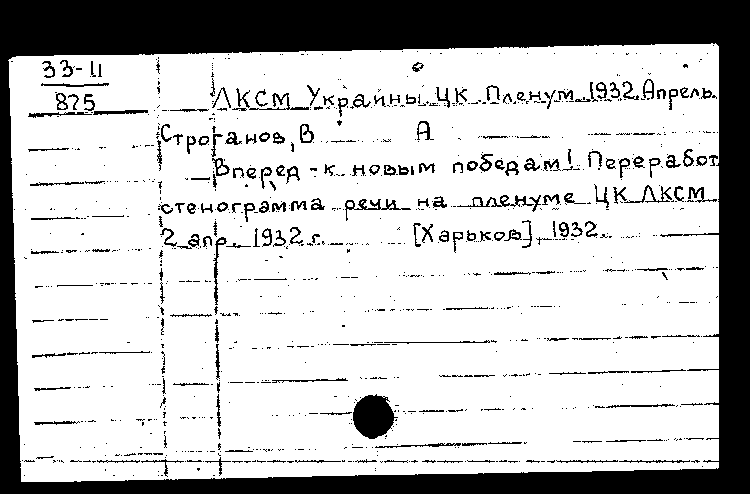 33-11
875
ЛКСМ Украины ЦК Пленум 1932 Апрель
Строганов, В А
Вперед - к новым победам! Переработ
стенограмма речи на пленуме ЦК ЛКСМ
2 апр. 1932 г. [Харьков], 1932.